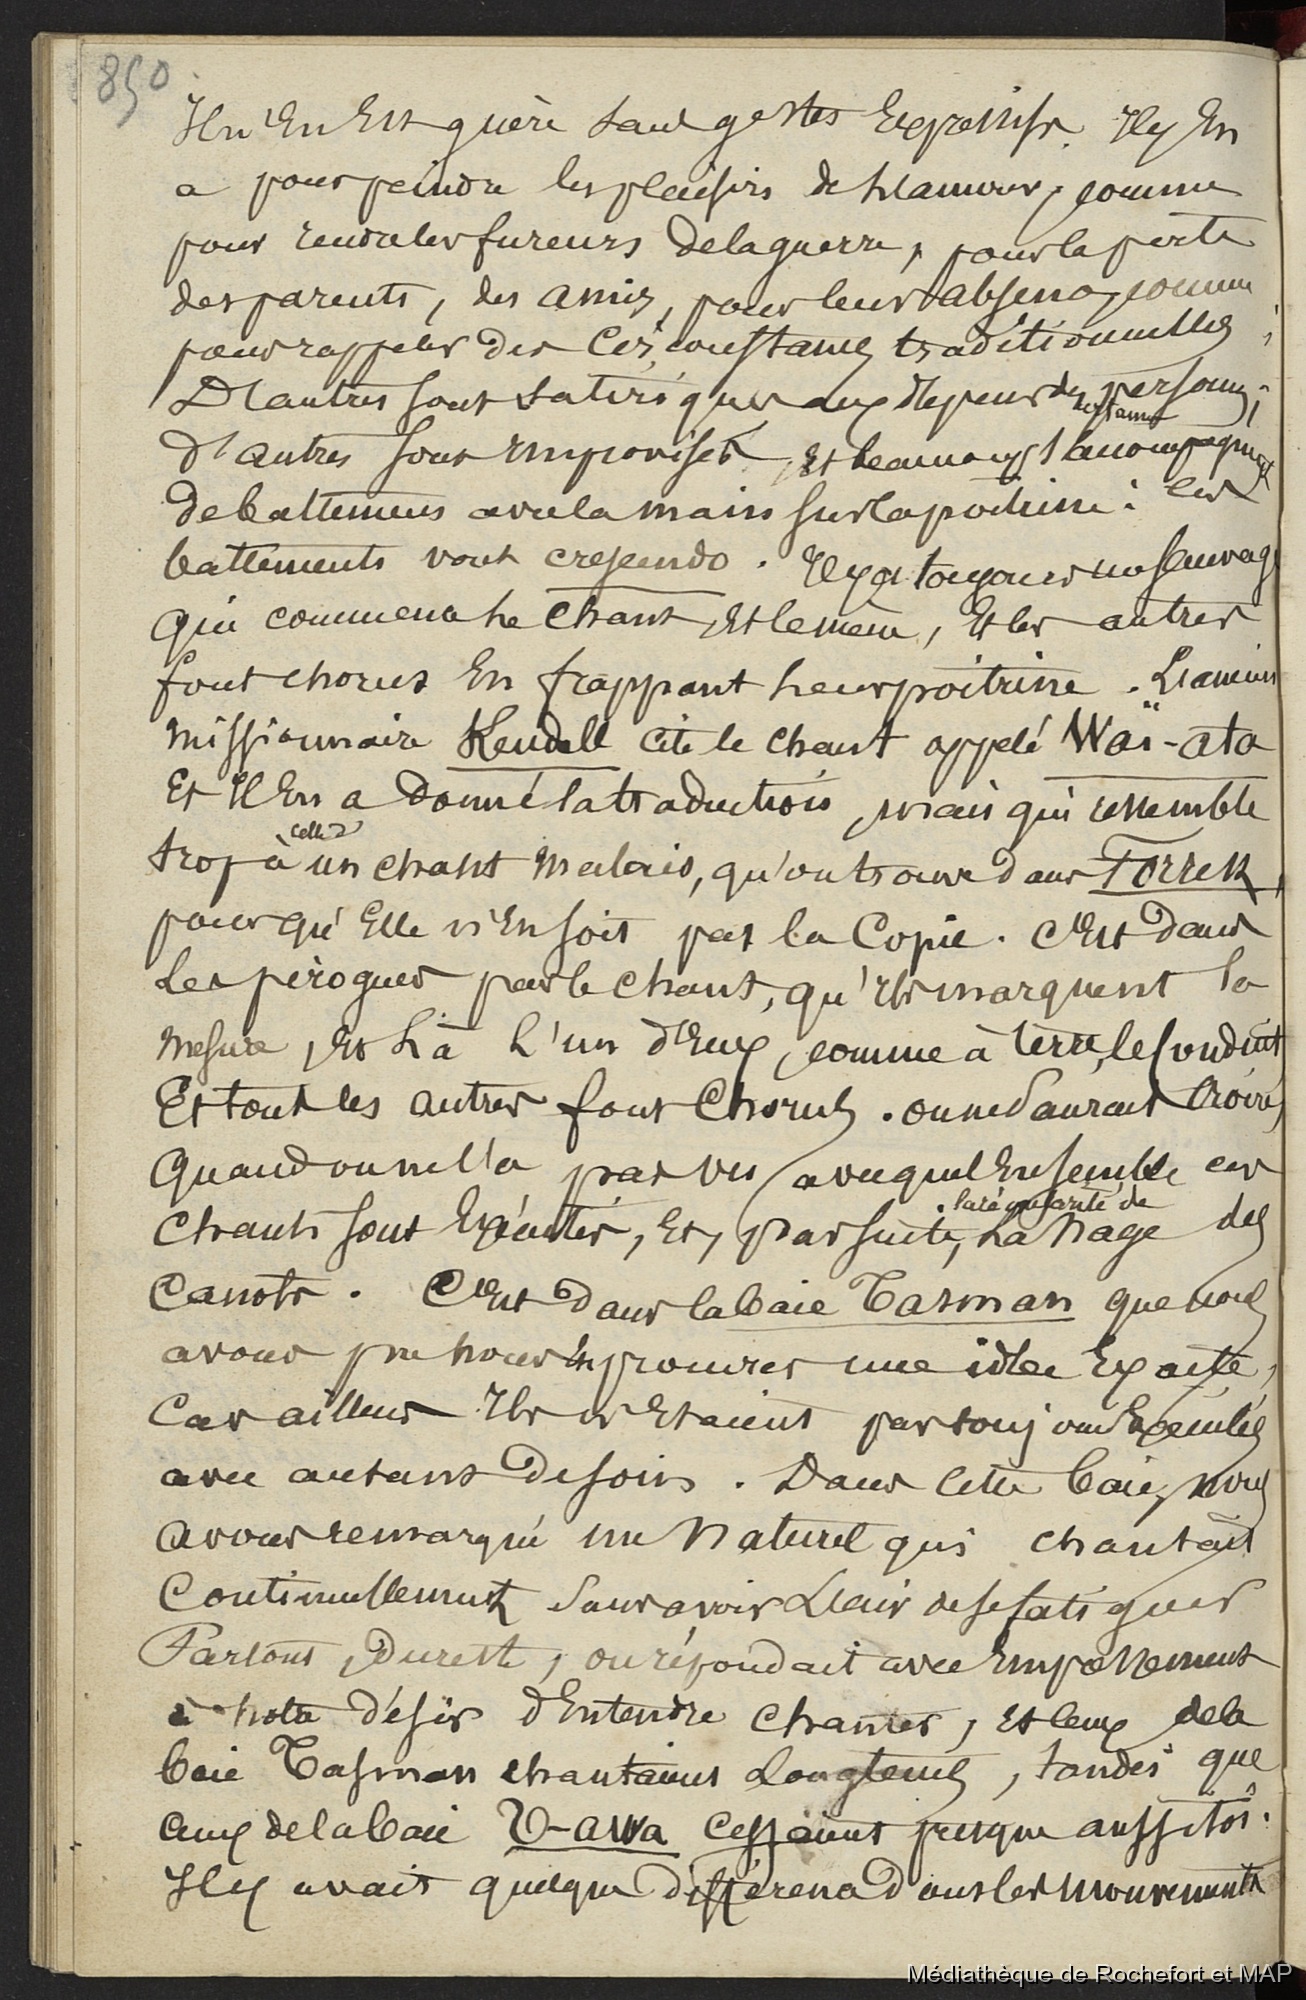 850
Il n'en est guère sans gestes expressifs. Il y en
a pour peindre les plaisirs de l'amour, comme
pour rendre les fureurs de la guerre, pour la perte
des parents, des amis, pour leur absence, comme
pour rappeler des circonstances traditionnelles ;
D'autres sont satiriques aux dépens des personnes ;
d'autres sont improvisés, et beaucoup s'accompagnent
de battements avec la main sur la poitrine : ces
battements vont crescendo. Il y a toujours un sauvage
qui commence le chant, et le mène, et les autres
font chorus en frappant leur poitrine. L'ancien
missionnaire Kendall cite le chant appelé Waï-ata
et il en a donné la traduction, mais qui ressemble
trop à celle d'un chant malais, qu'on trouve dans Forrest,
pour qu'elle n'en soit pas la copie. C'est dans
les pirogues par le chant, qu'ils marquent la
mesure, et là l'un d'eux, comme à terre, le conduit
et tous les autres font chorus. on ne saurait croire,
quand on ne l'a pas vu, avec quel ensemble ces
chants sont exécutés, et, par suite, la régularité de la nage des
canots. C'est dans la baie Tasman que nous
avons pu nous en procurer une idée exacte,
car ailleurs ils n'étaient pas toujours exécutés
avec autant de soin. Dans cette baie, nous
avons remarqué un naturel qui chantait
continuellement sans avoir l'air de se fatiguer
Partout, du reste, on répondait avec empressement
à notre désir d'entendre chanter, et ceux de la
baie Tasman chantaient longtems, tandis que
ceux de la baie Tawa cessaient presque aussitôt.
Il y avait quelque différence dans les mouvements
Médiathèque de Rochefort et MAP